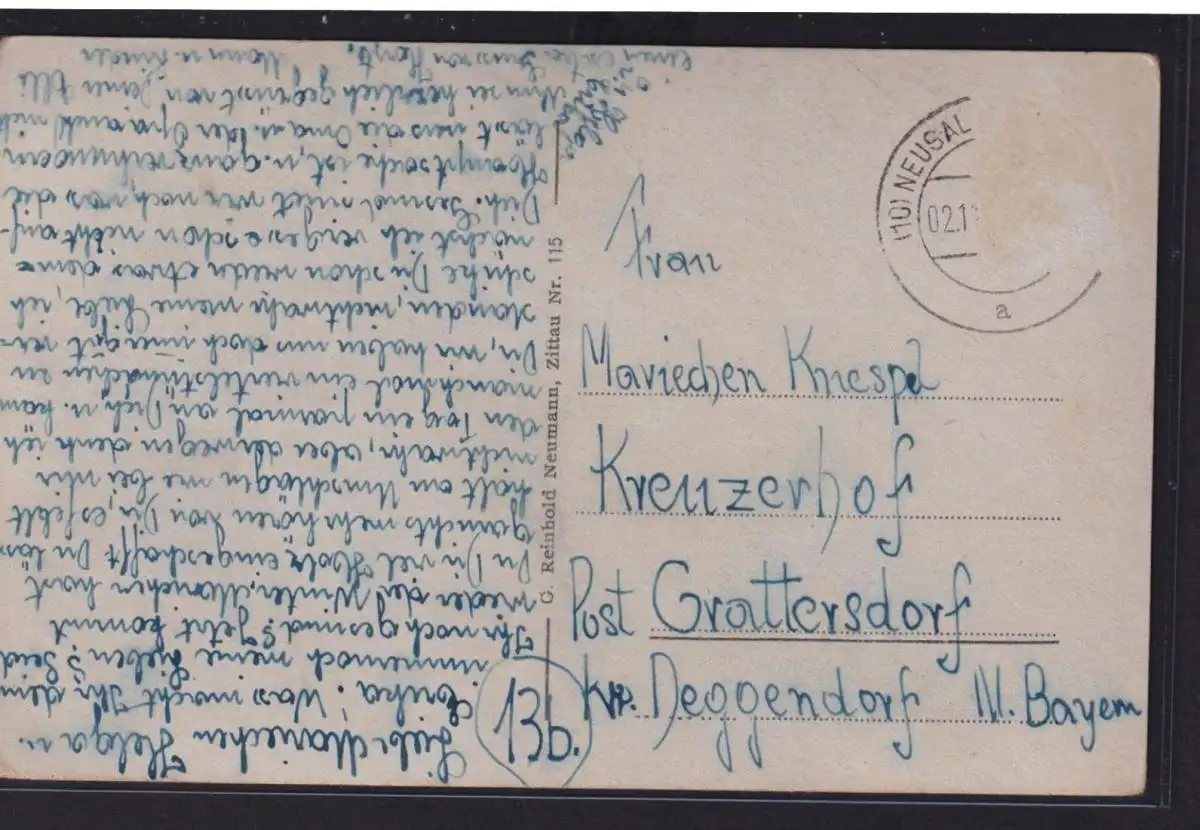 Liebe Mariechen Helga u.
Erika! Was macht Ihr denn
immernoch meine Lieben? Seid
Ihr noch gesund? Jetzt kommt
wieder der Winter, Mariechen hast
Du Dir viel Holz eingeschafft Du läs=
garnichts mehr hören von Dir, es fehlt
halt am Umschlägen wie bei mir
nichtwahr, aber deswegen denk ich
den Tag ein paarmal an Dich u. kom
manchmal ein viertelstündchen zu
Dir, wir haben uns doch immer gut ver=
standen, nichtwahr meine Liebe, ich
schicke Dir schon wieder etwas
ich schon nicht auf=
Dich. Gesund sind wir noch, was die
Hauptsache ist, u. ganz
lässt uns die Oma u. der Opa nich
Nun sei herzlich gegrüsst von Deiner Elli
Mann u. Kinder
einen extra Gruss von Horst.
an Helga
u. Erika
G. Reinhold Neumann, Zittau Nr. 115
(10) NEUSAL
02.1
a
Frau
Mariechen Knespel
Kreuzerhof
Post Grattersdorf
13b. Krs. Deggendorf N. Bayern